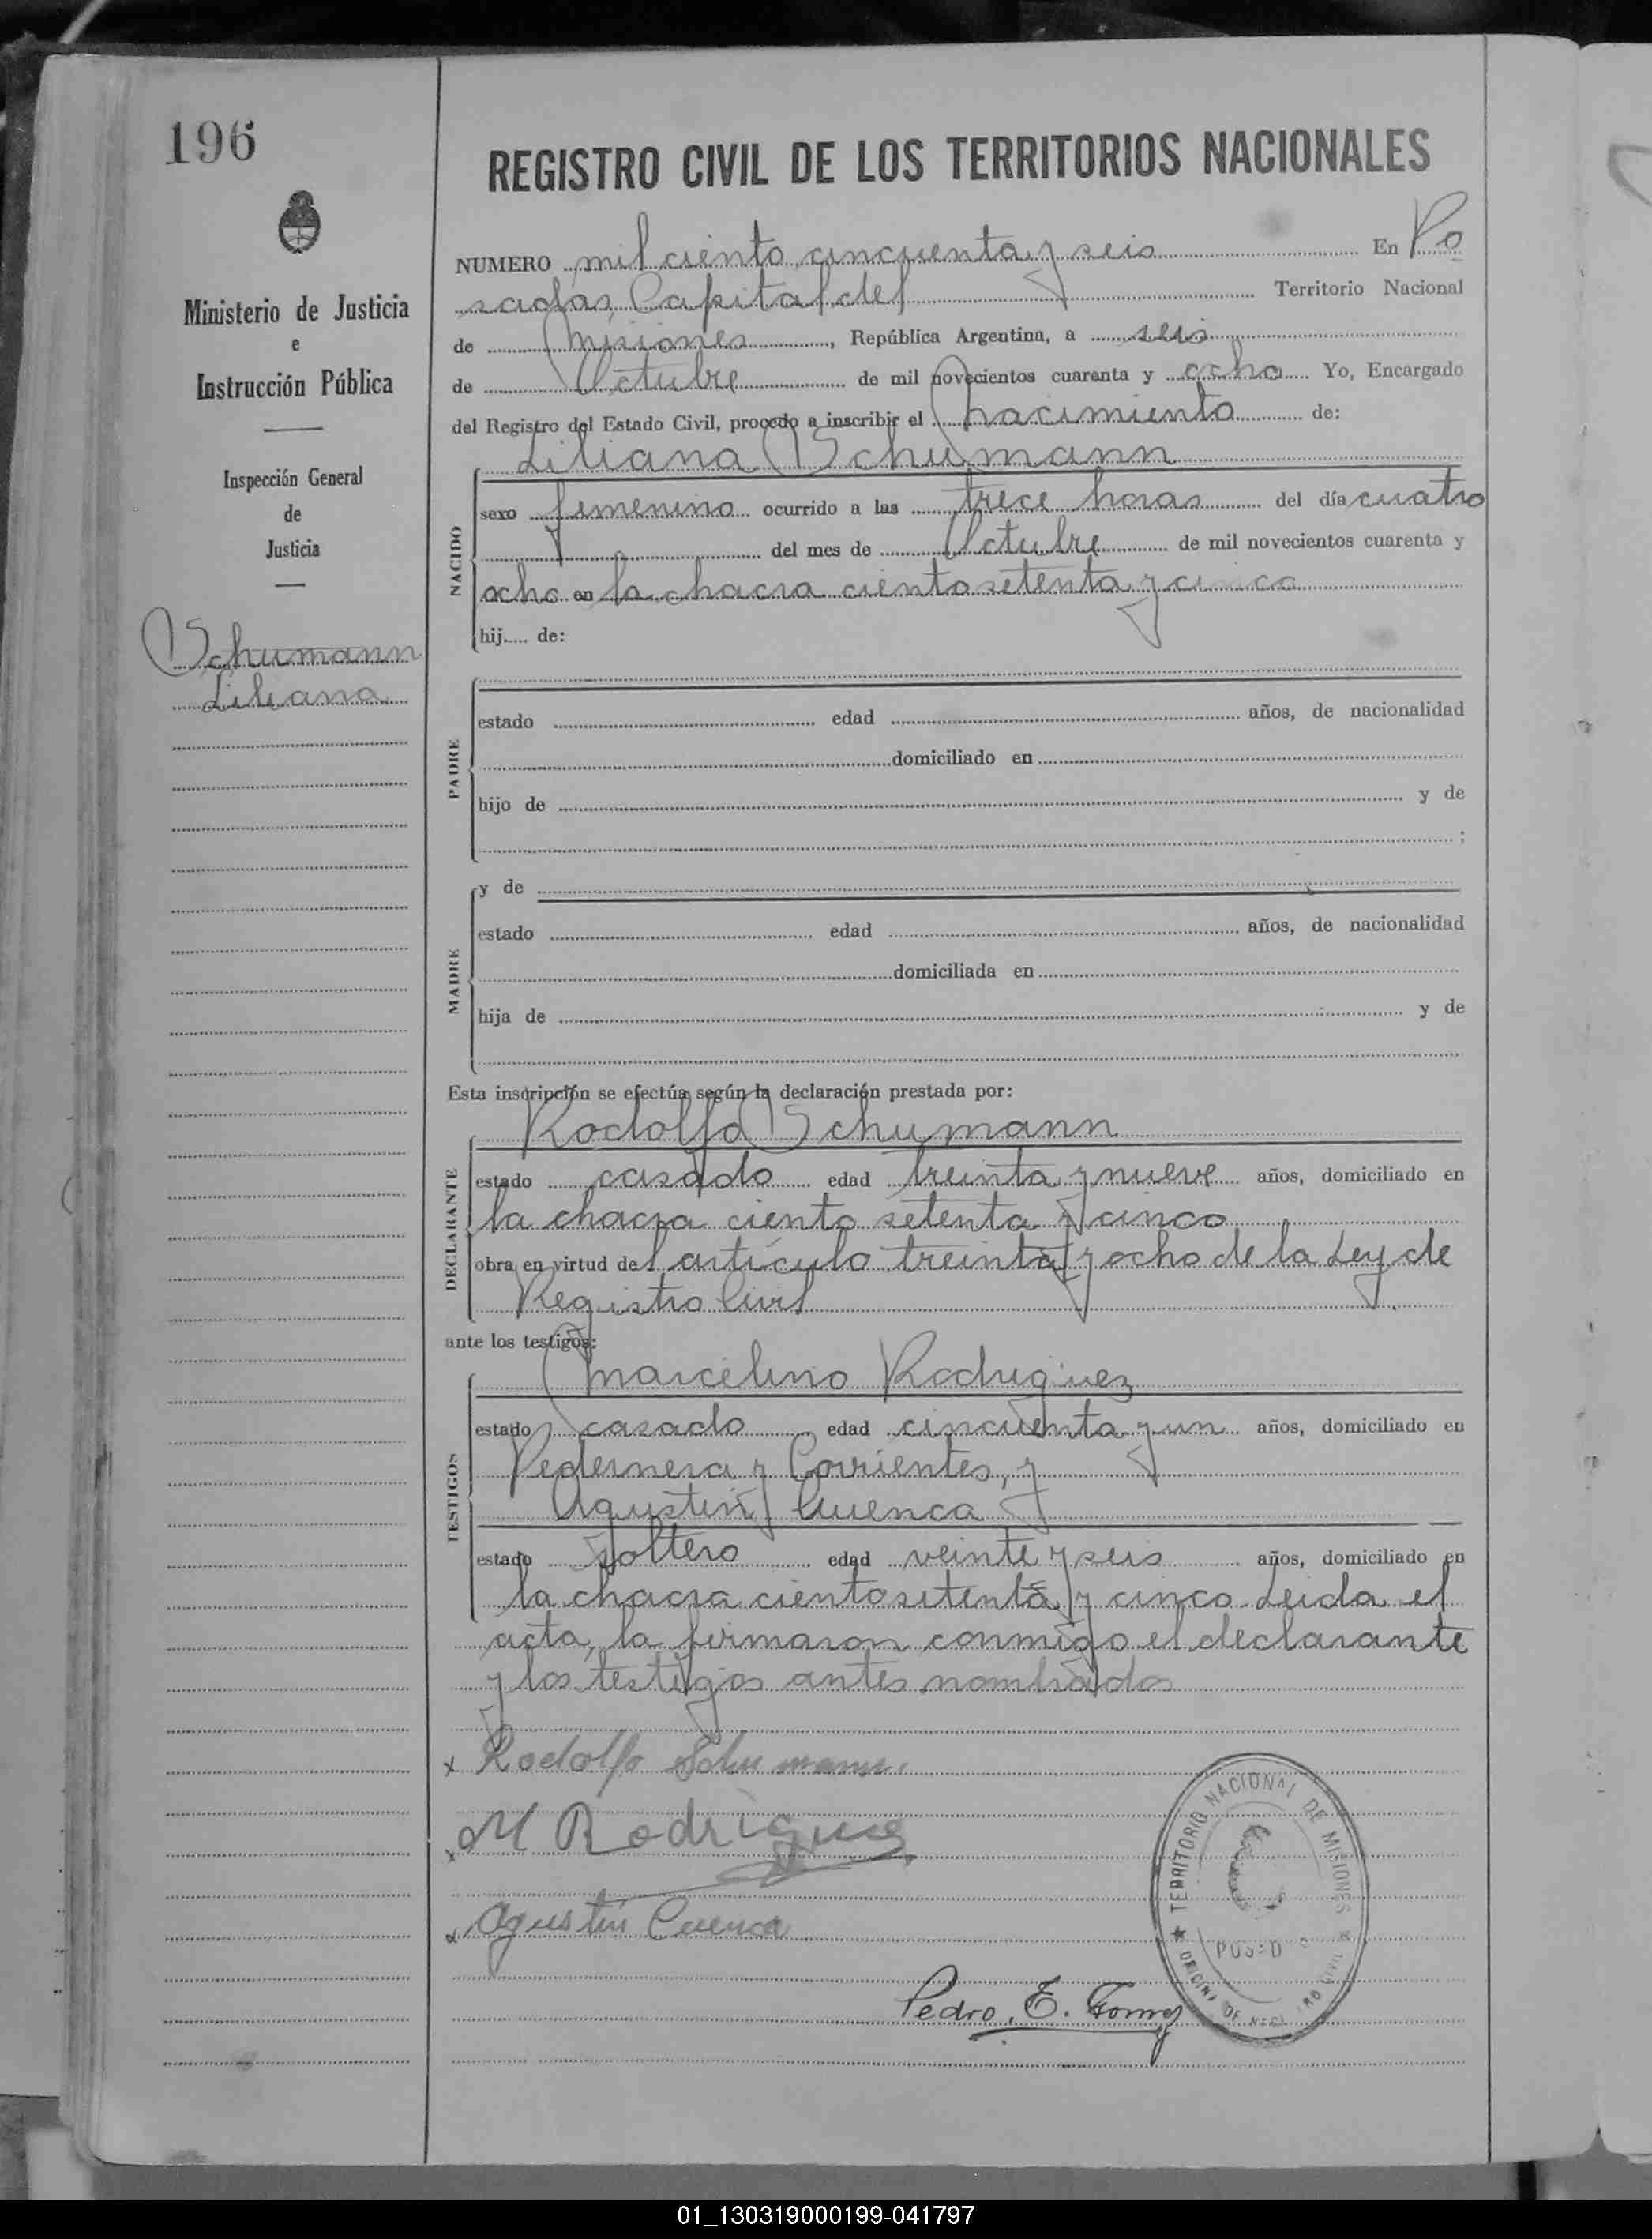 196
REGISTRO CIVIL DE LOS TERRITORIOS NACIONALES
Ministerio de Justicia
e
Instrucción Pública
Inspección General
de
Justicia
Schumann
Liliana
NUMERO mil ciento cincuenta y seis En Po
sadas, Capital del Territorio Nacional
de Misiones, República Argentina, a seis
de Octubre de mil novecientos cuarenta y ocho Yo, Encargado
del Registro del Estado Civil, procedo a inscribir el nacimiento de:
NACIDO
Liliana Schumann
sexo femenino ocurrido a las trece horas del día cuatro
del mes de Octubre de mil novecientos cuarenta y
ocho en la chacra ciento setenta y cinco
hij.... de:
PADRE
estado edad años, de nacionalidad
domiciliado en
hijo de y de
;
MADRE
y de
estado edad años, de nacionalidad
domiciliada en
hija de y de
Esta inscripción se efectúa según la declaración prestada por:
DECLARANTE
Rodolfo Schumann
estado casado edad treinta y nueve años, domiciliado en
la chacra ciento setenta y cinco
obra en virtud del artículo treinta y ocho de la Ley de
Registro Civil
ante los testigos:
TESTIGOS
Marcelino Rodriguez
estado casado edad cincuenta y un años, domiciliado en
Pedernera y Corrientes, y
Agustin Cuenca
estado soltero edad veinte y seis años, domiciliado en
la chacra ciento setenta y cinco. Leida el
acta, la firmaron conmigo el declarante
y los testigos antes nombrados
x Rodolfo Schumann.
x M Rodriguez
x Agustin Cuenca
Pedro. E. Gomez
★ TERRITORIO NACIONAL DE MISIONES ★
OFICINA DE REGISTRO CIVIL
01_130319000199-041797